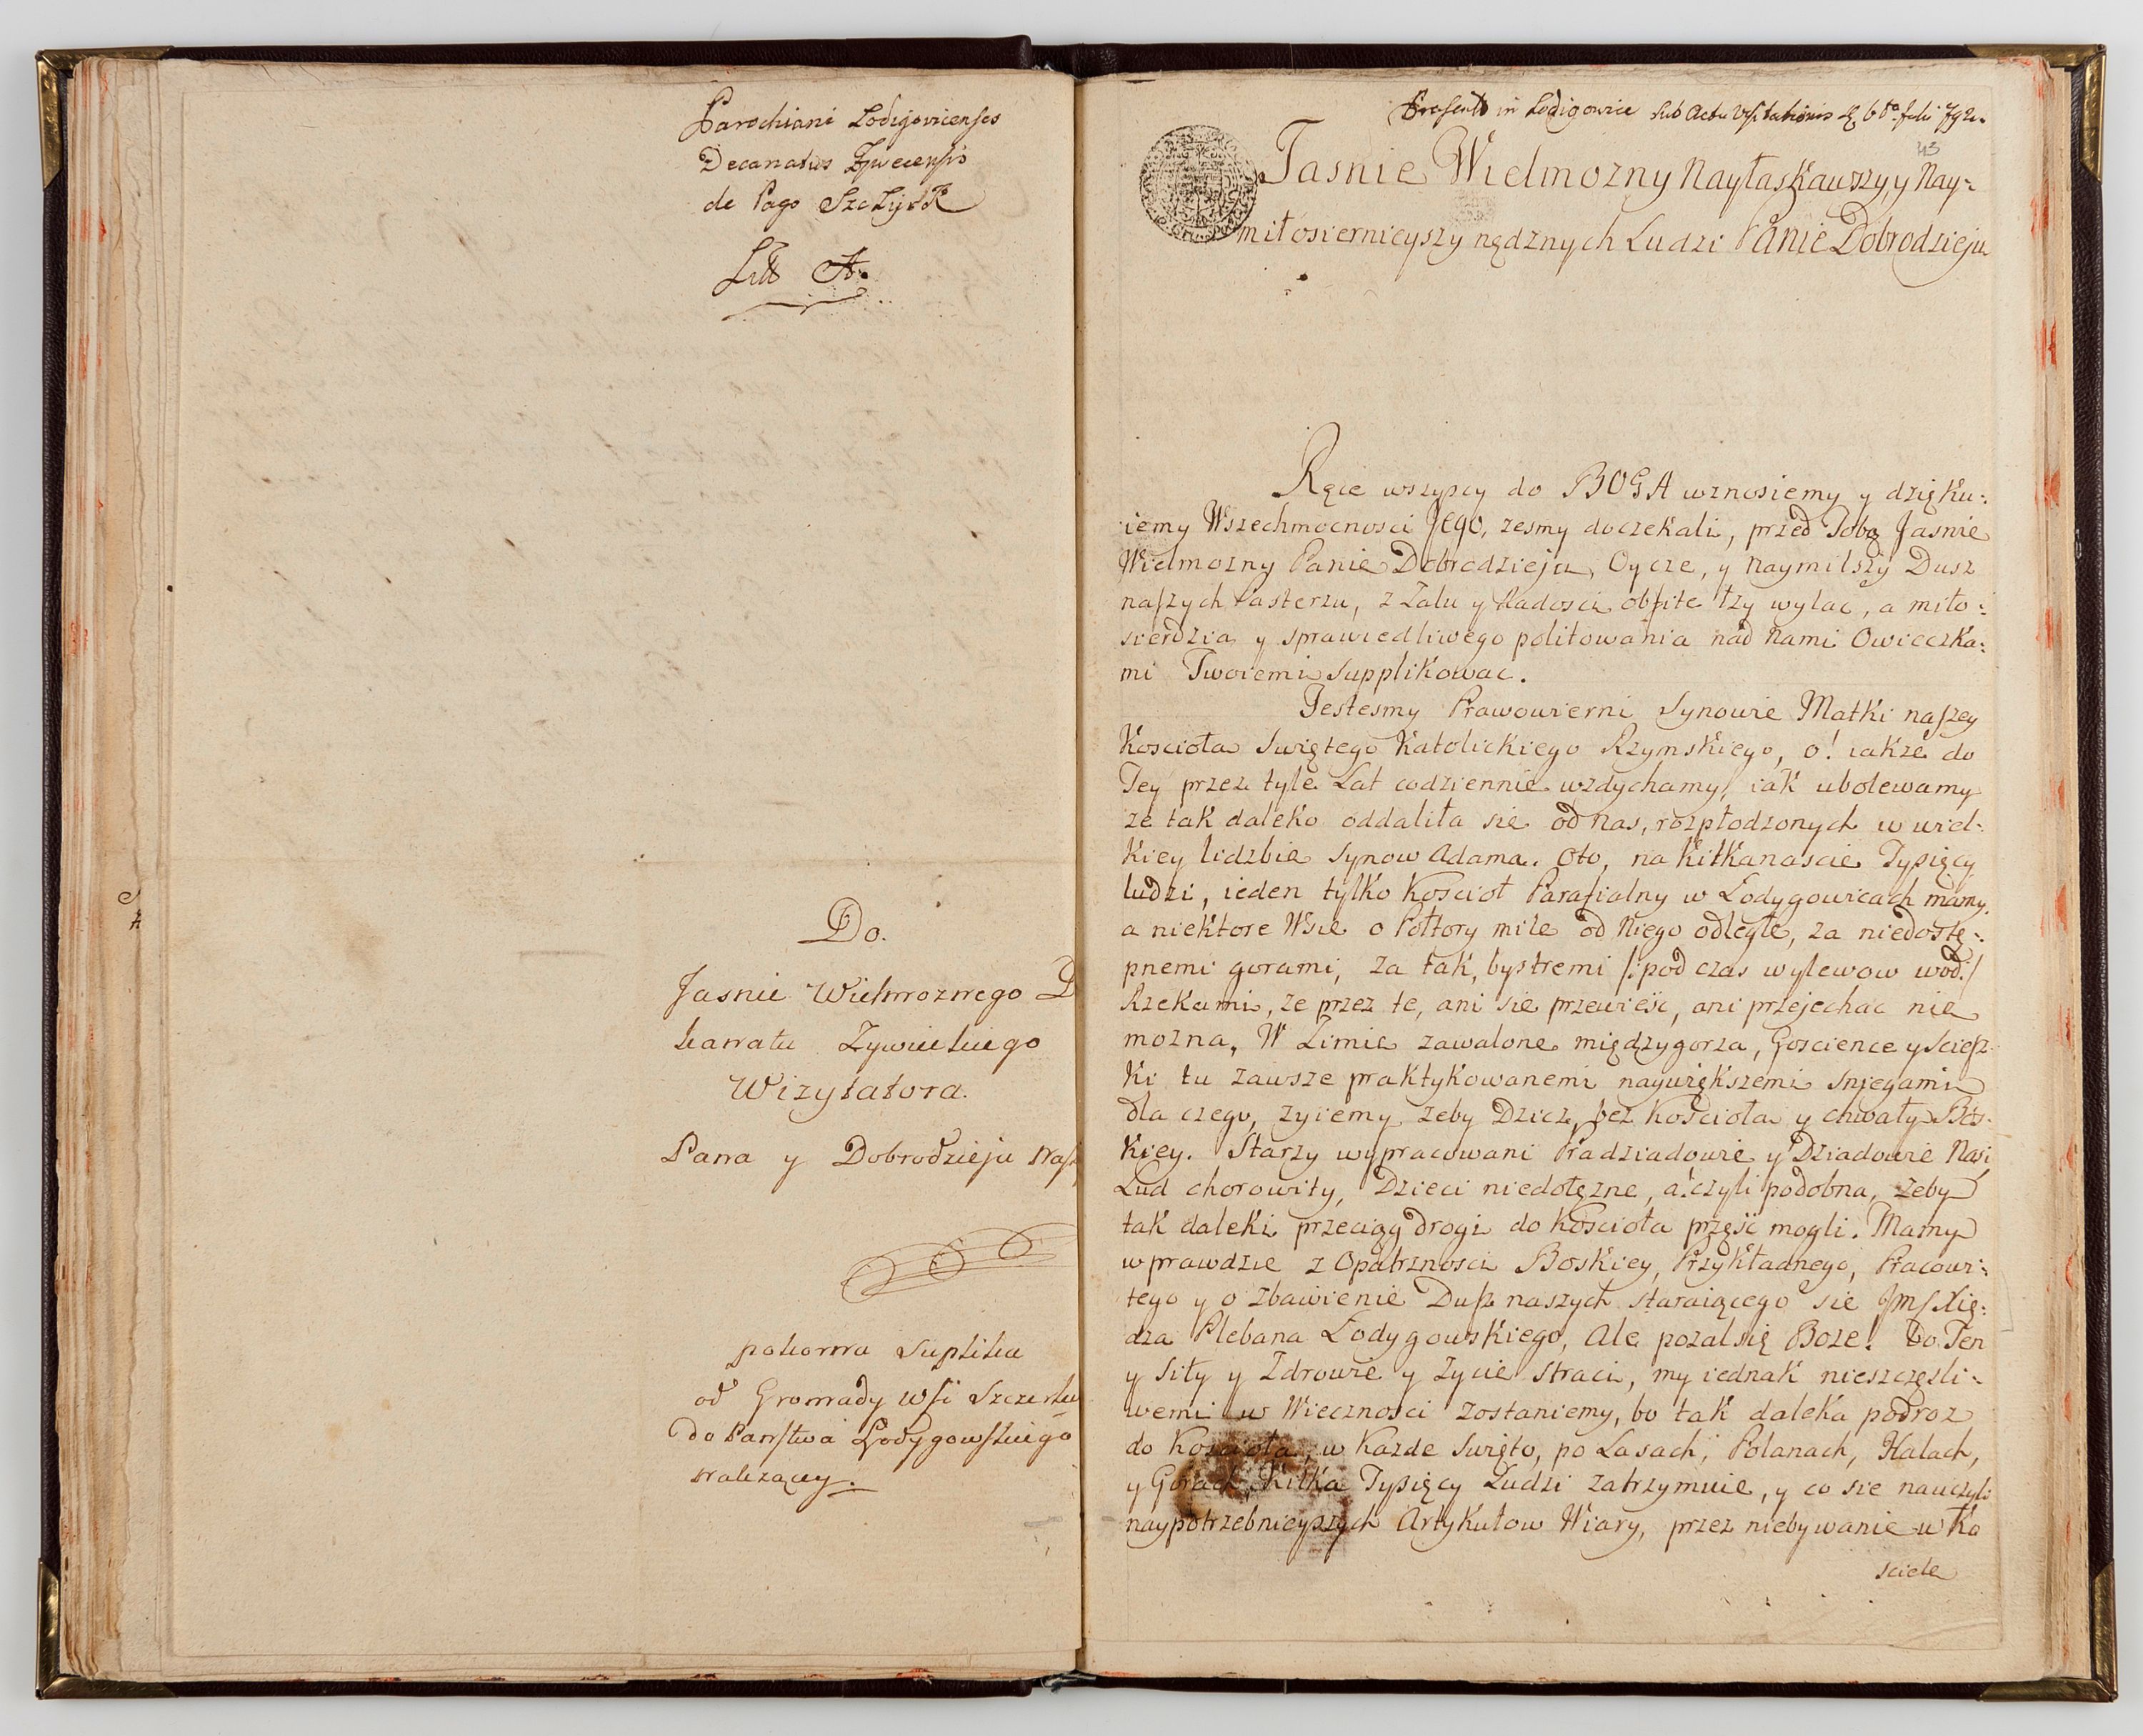 Parochiani Lodigovicenses
Decanatus Zywecensis
de Pago Szczyrk
Litt A.
Do.
Jasnie Wielmoznego
kanatu Zywieckiego
Wizytatora.
Pana y Dobrodzieju Nasz
pokorna Suplika
od Gromady Wsi Szczerku
do Panstwa Lodygowskiego
nalezącey.
in Lodigowice sub Actu Visitationis
43
Jasnie Wielmozny Nayłaskawszy, y Nay-
miłosiernieyszy nędznych Ludzi Panie Dobrodzieju
Ręce wszyscy do BOGA wznosiemy y dzięku:
iemy Wszechmocnosci Jego, zesmy doczekali, przed Tobą Jasnie
Wielmozny Panie Dobrodzieju, Oycze, y Naymilszy Dusz
naszych Pasterzu, z Zalu y Radosci obfite łzy wylac, a miło:
sierdzia y sprawiedliwego politowania nad Nami Owieczka:
mi Twoiemi supplikowac.
Jestesmy Prawowierni Synowie Matki naszey
Koscioła Swiętego Katolickiego Rzymskiego, o! iakze do
Jey przez tyle Lat codziennie wzdychamy, iak ubolewamy
ze tak daleko oddaliła się od nas, rozpłodzonych w wiel:
kiey liczbie synow Adama. Oto, na kilkanascie Tysięcy
ludzi, ieden tylko Koscioł Parafialny w Łodygowicach mamy.
a niektore Wsie o Połtory mile od Niego odległe, za niedostę:
pnemi gorami, za tak, bystremi /:pod czas wylewow wod:/
Rzekami, ze przez te, ani się przewieść, ani przejechac nie
mozna. W Zimie zawalone międzygorza, Goscience y Sciesz:
ki tu zawsze praktykowanemi naywiększemi sniegami
dla czego, zyiemy zeby Dzicz, bez Koscioła y chwały Bos-
kiey. Starzy wypracowani Pradziadowie y Dziadowie Nasi
Lud chorowity, Dzieci niedołęzne, a! czyli podobna, zeby
tak daleki przeciąg drogi do koscioła przejść mogli. Mamy
wprawdzie z Opatrznosci Boskiey, Przykładnego, Pracowi:
tego y o zbawienie Dusz naszych staraiącego się Jm/Xię:
dza Plebana Łodygowskiego, Ale pozal się Boze! Bo Ten
y siły y Zdrowie y Zycie straci, my iednak nieszczęsli-
wemi w Wiecznosci zostaniemy, bo tak daleka podroz
do Koscioła, w Kazde Swięto, po Lasach, Polanach, Halach,
y Gorach Kilka Tysięcy Ludzi zatrzymuie, y co się nauczyli
naypotrzebnieyszych Artykułow Wiary, przez niebywanie w Ko
sciele